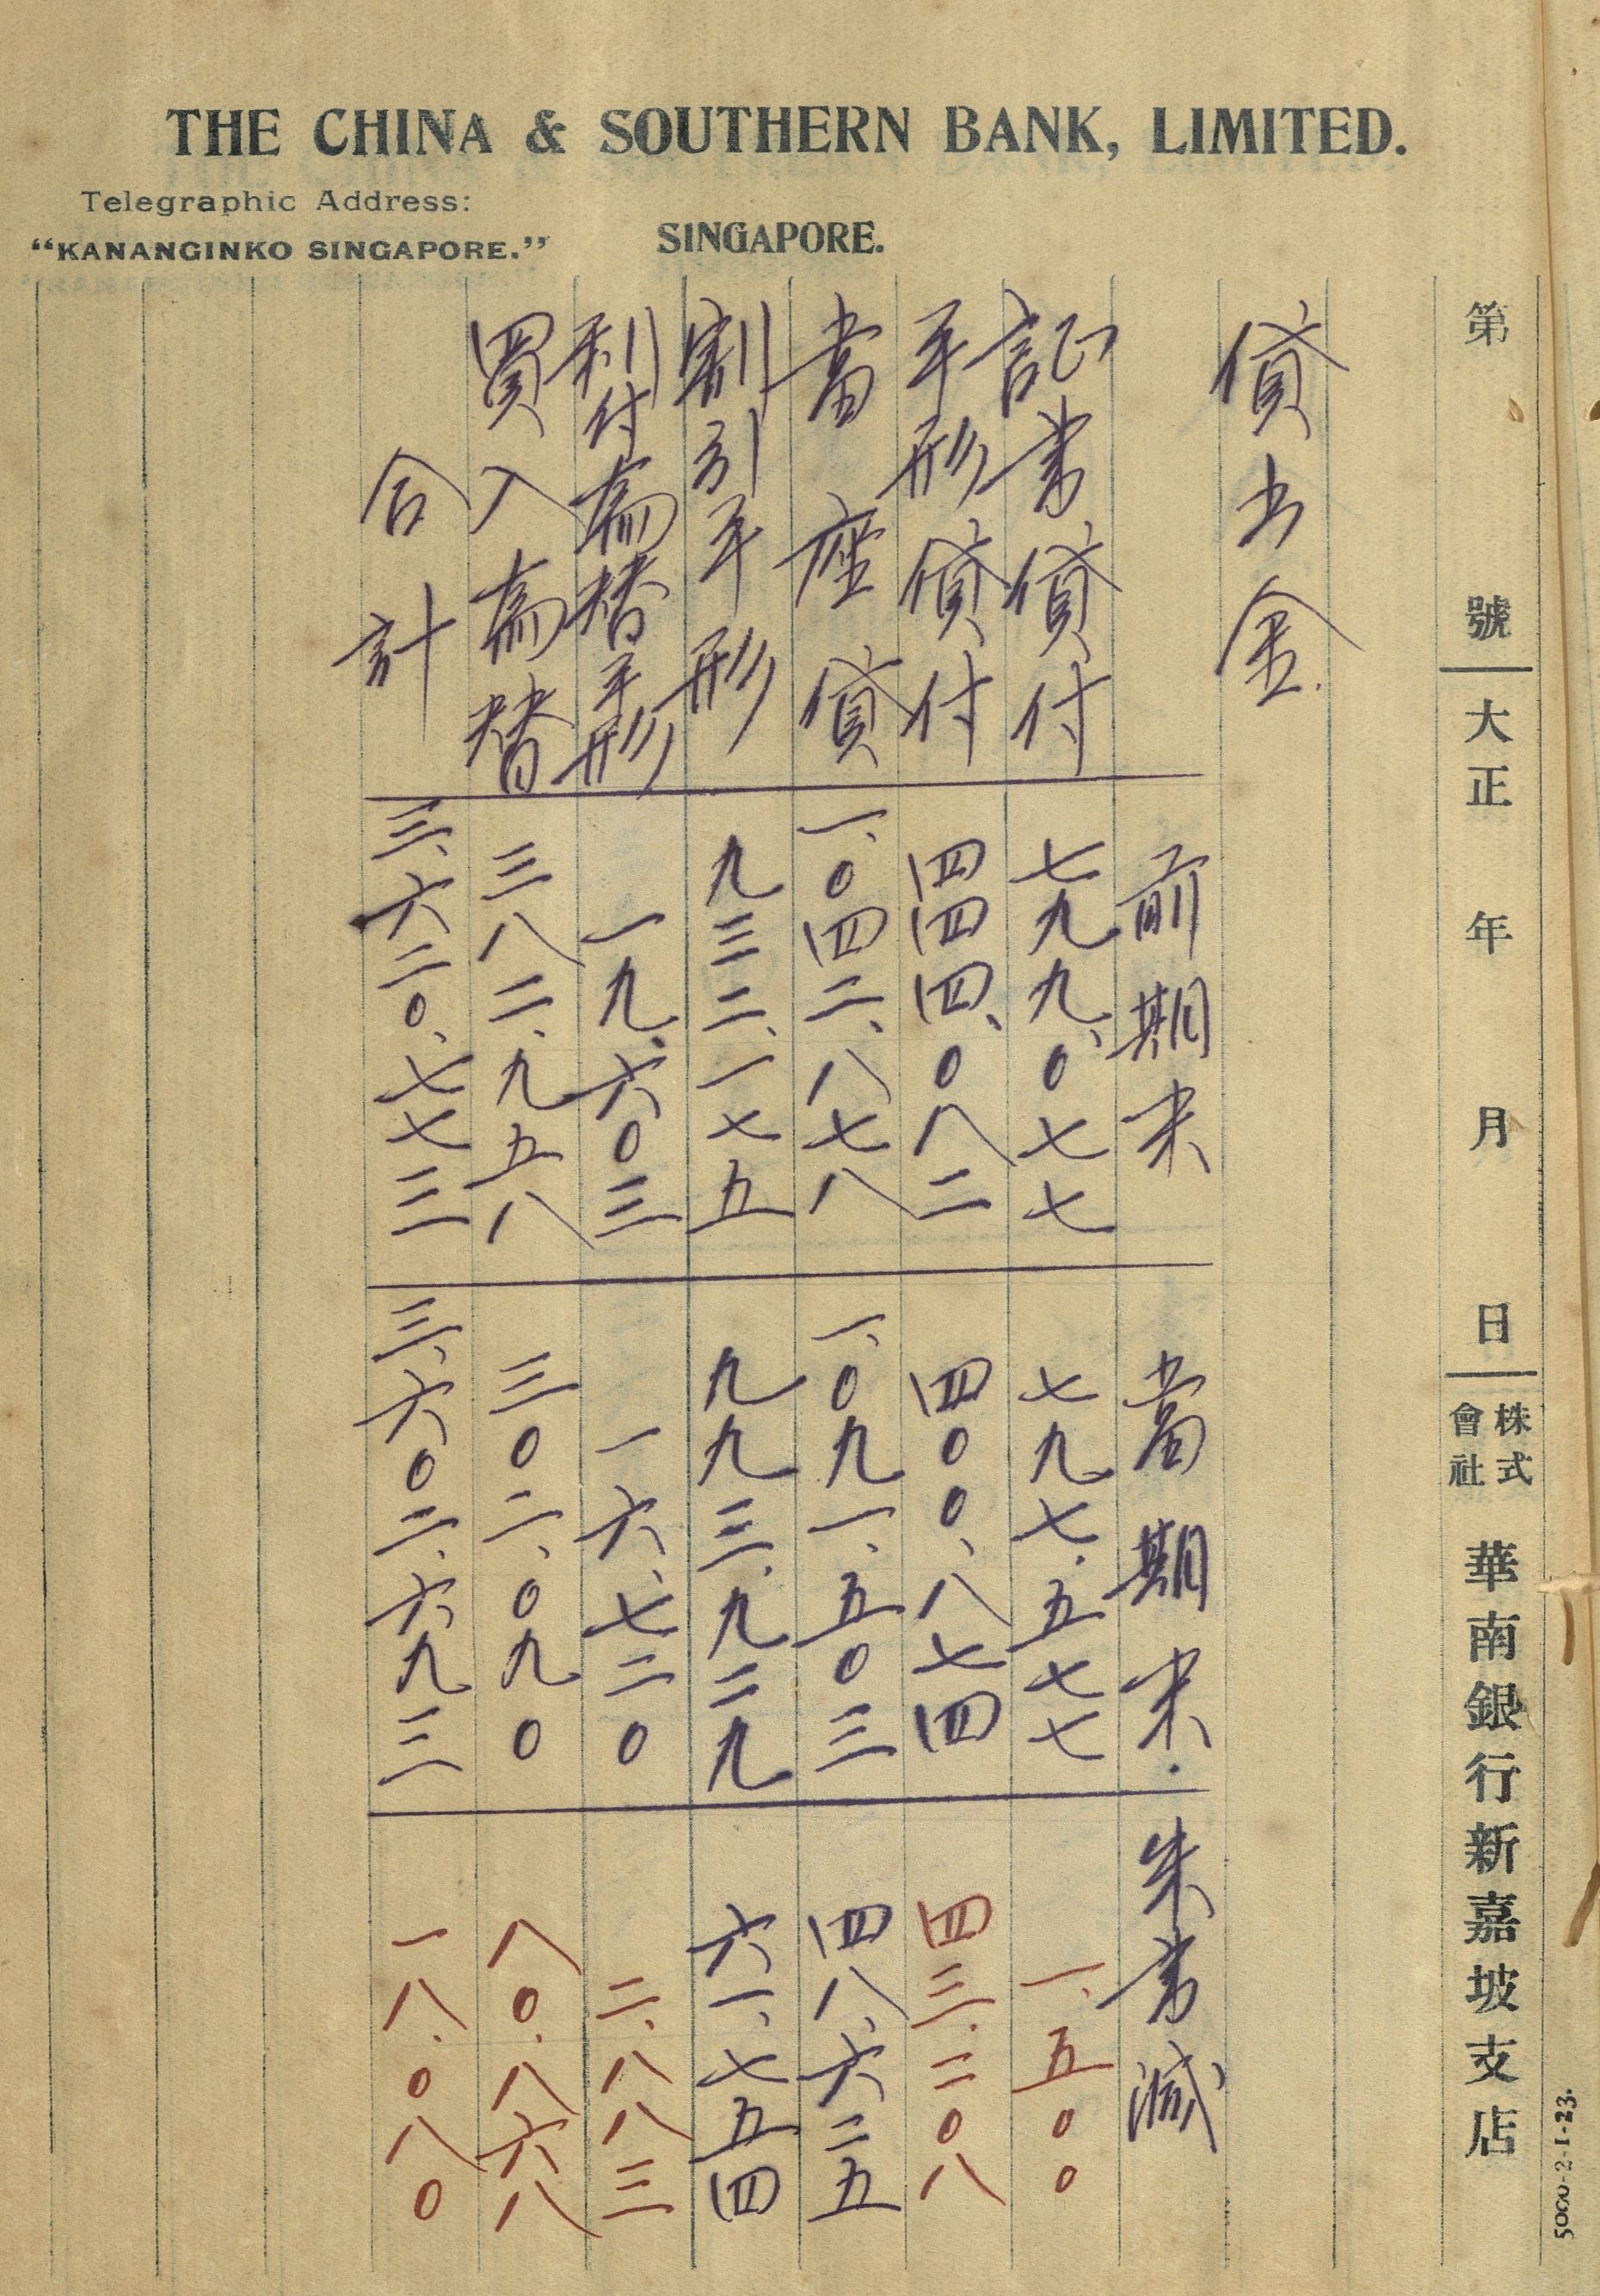 THE CHINA & SOUTHERN BANK, LIMITED.
Telegraphic Address:
“KANANGINKO SINGAPORE.”
SINGAPORE.
第 號 大正 年 月 日 株式會社 華南銀行新嘉坡支店
5000-2-1-23.
貸出金.
前期末 當期末. 朱書減
証書貸付 七九九、〇七七 七九七、五七七 一、五〇〇
手形貸付 四四四、〇八二 四〇〇、八七四 四三、二〇八
當座貸 一、〇四二、八七八 一、〇九一、五〇三 四八、六二五
割引手形 九三二、一七五 九九三、九二九 六一、七五四
利付為替手形 一九、六〇三 一六、七二〇 二、八八三
買入為替 三八二、九五八 三〇二、〇九〇 八〇、八六八
合計 三、六二〇、七七三 三、六〇二、六九三 一八、〇八〇